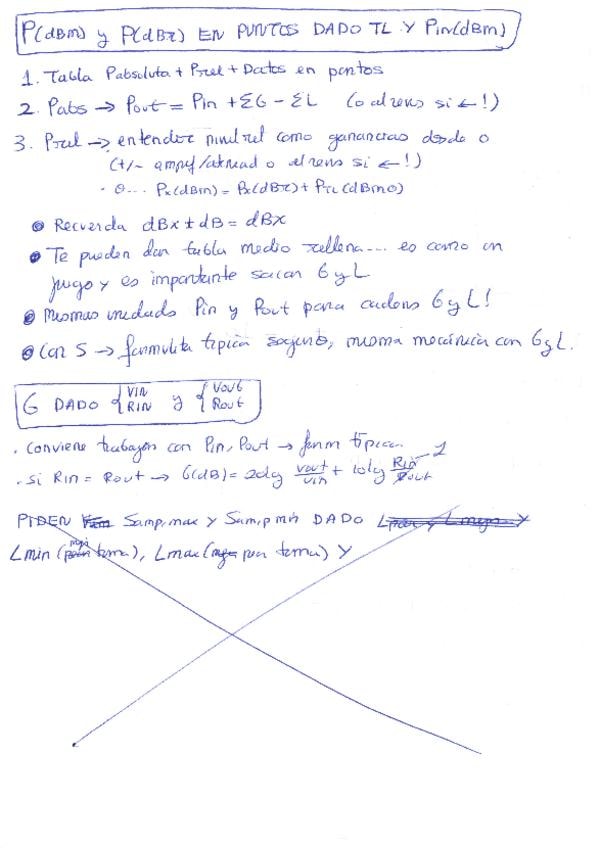 P(dBm) y P(dBr) EN PUNTOS DADO TL Y Pin(dBm)
1. Tabla Pabsoluta + Prel + Datos en puntos
2. Pabs → Pout = Pin + ΣG - ΣL (o al revés si ←!)
3. Prel → entender nivel rel como ganancias desde 0
(+/- ampf/atenuad o al revés si ←!)
· O... Px(dBm) = Px(dBr) + PTL(dBm0)
• Recuerda dBx ± dB = dBx
• Te pueden dar tabla medio rellena... es como un
juego y es importante sacar G y L
• Mismas unidades Pin y Pout para cadena G y L!
• Con S → formulita típica, misma mecánica con G y L.
G DADO { VIN RIN y { Vout Rout
· Conviene trabajar con Pin, Pout → form típicas
· Si Rin = Rout → G(dB) = 20lg vout/vin + 10lg Rin/Rout 1
PIDEN Samp,max y Samp,min DADO
Lmin (mejor tema), Lmax (peor tema) y